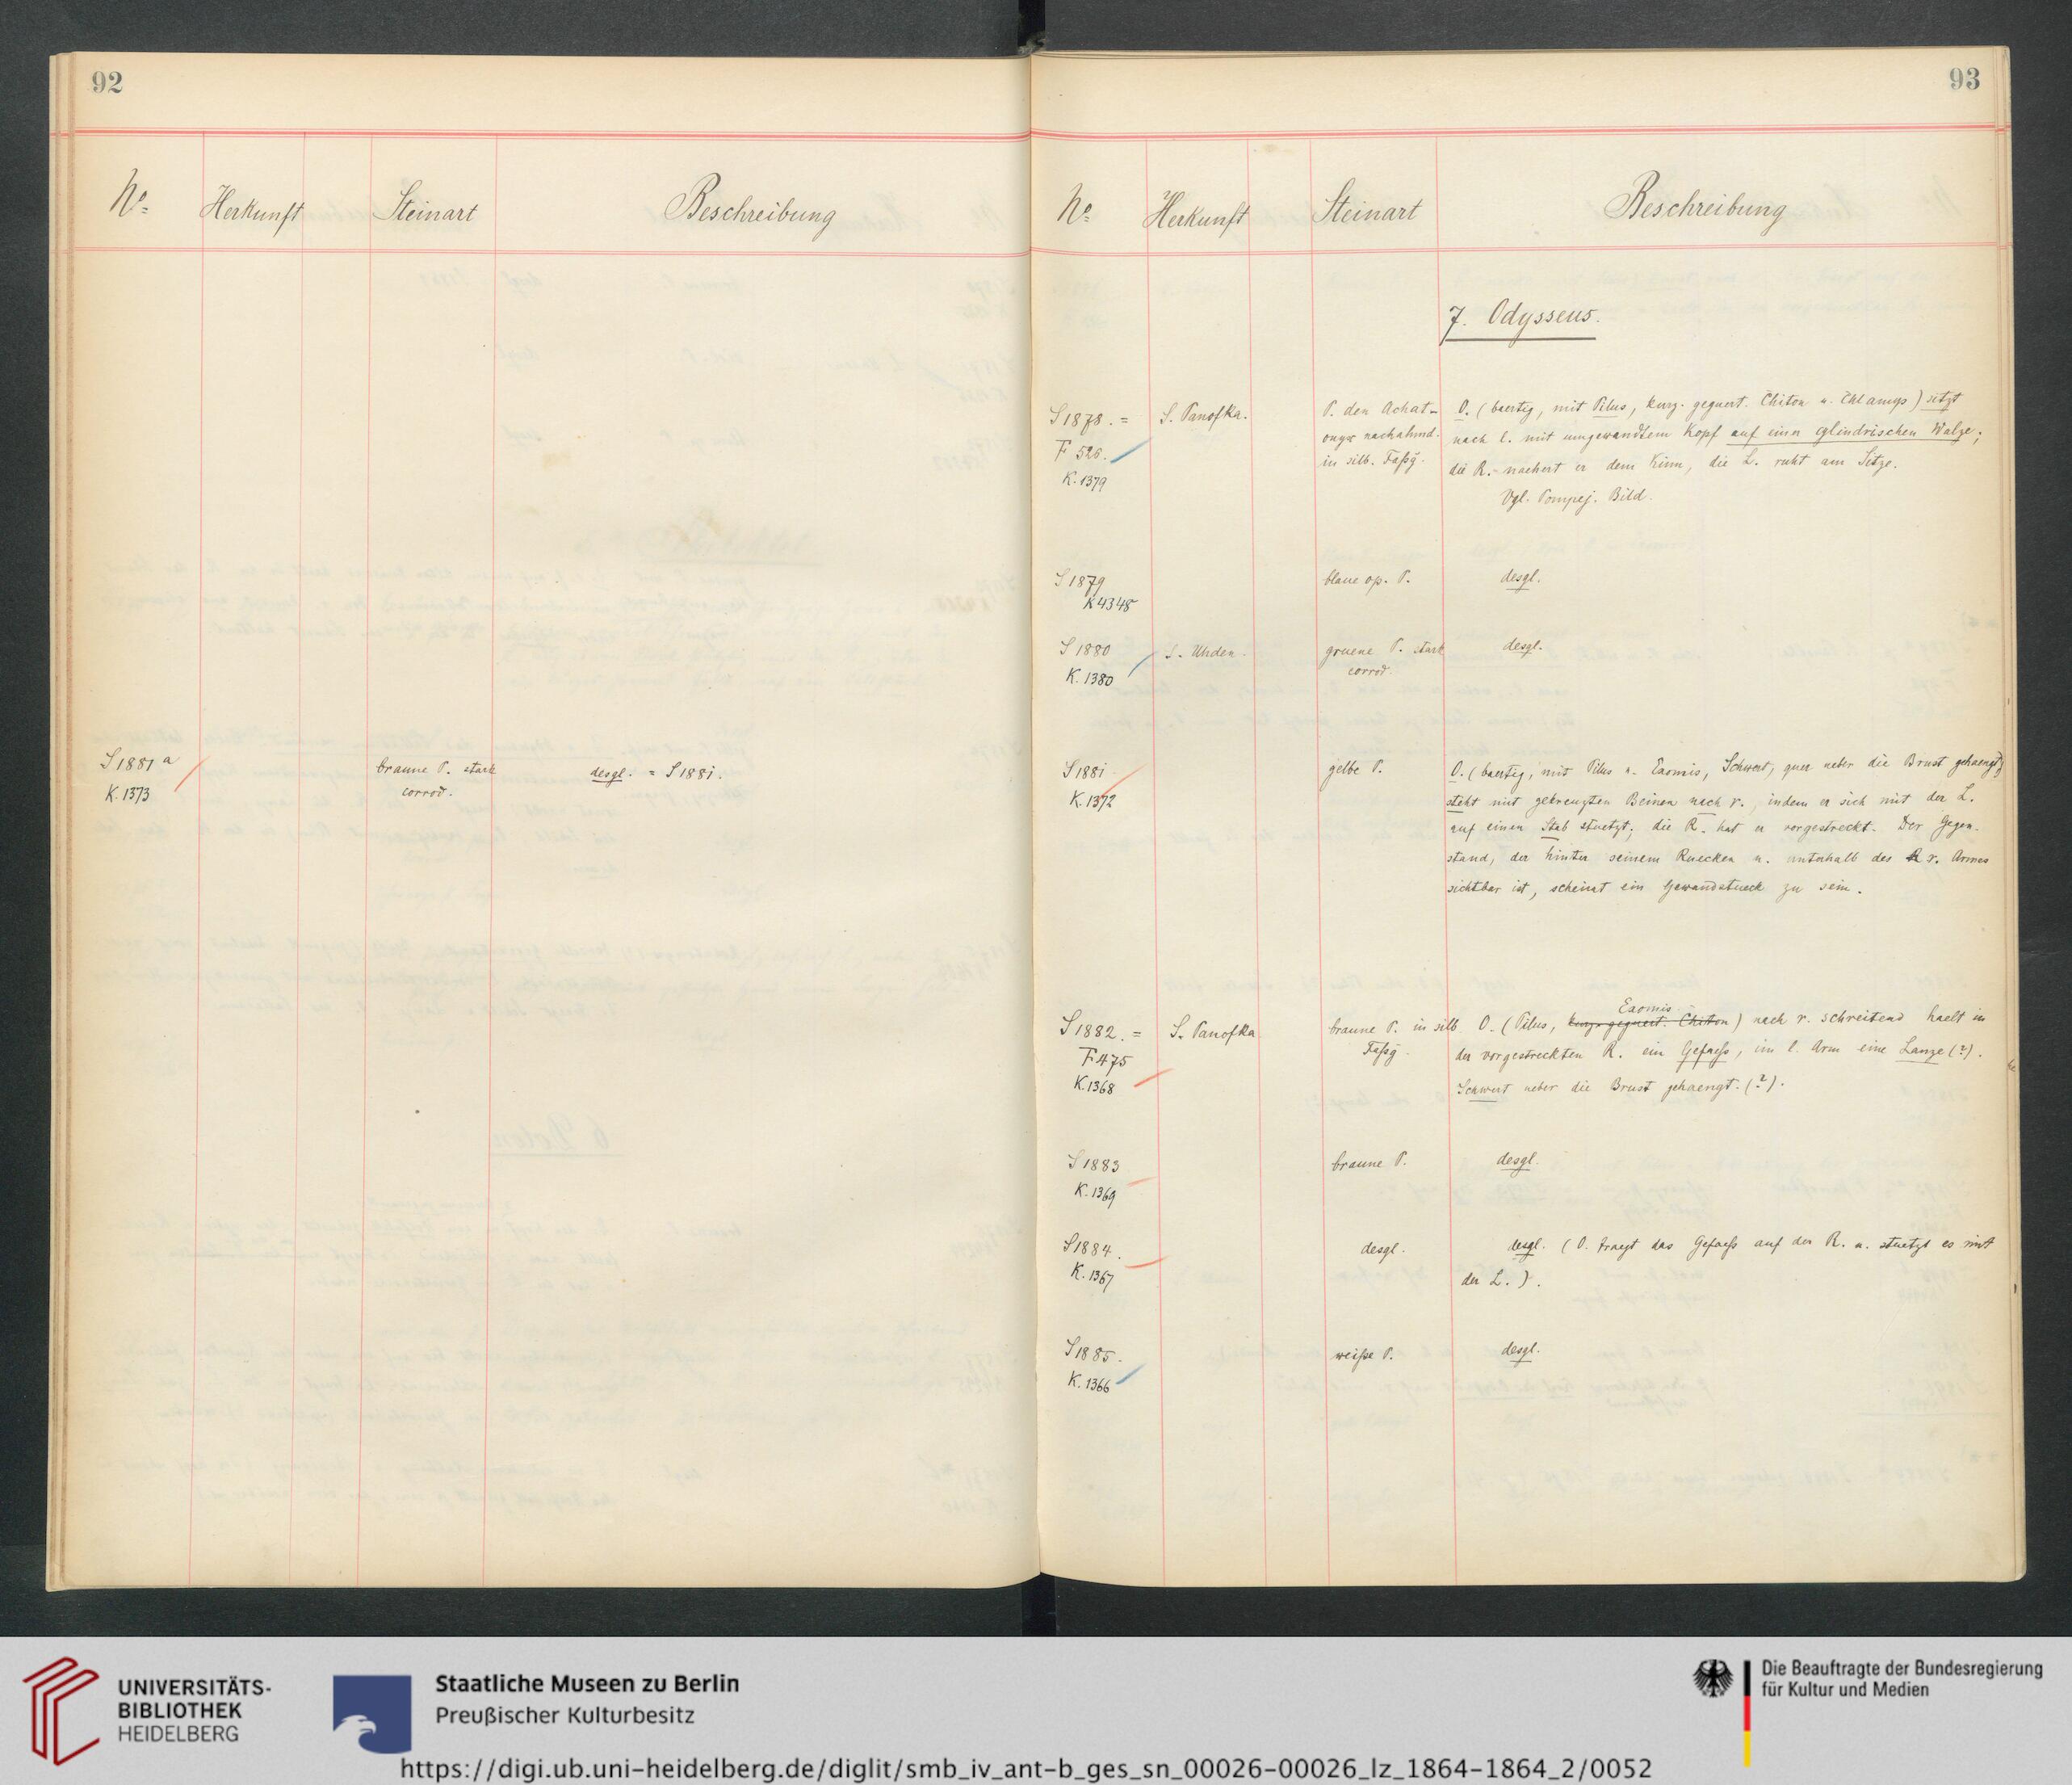 92
No Herkunft Steinart Beschreibung
S 1881 a braune P. stark desgl. = S 1881.
K. 1373 corrod.
93
No Herkunft Steinart Beschreibung
7. Odysseus.
S 1878. = S. Panofka. P. den Achat- O. (baertig, mit Pilus, kurz. geguert. Chiton u. Chlamys) sitzt
F 526. onyx nachahmd. nach l. mit umgewandtem Kopf auf einer cylindrischen Walze;
K. 1379 in silb. Faßg. die R. naehert er dem Kinn, die L. ruht am Sitze.
Vgl. Pompej. Bild.
S 1879 blaue op. P. desgl.
K 4348
S 1880 S. Uhden. gruene P. stark desgl.
K. 1380 corrod.
S 1881 gelbe P. O. (baertig, mit Pilus u. Exomis, Schwert, quer ueber die Brust gehaengt)
K. 1372 steht mit gekreuzten Beinen nach r., indem er sich mit der L.
auf einen Stab stuetzt; die R. hat er vorgestreckt. Der Gegen-
stand, der hinter seinem Ruecken u. unterhalb des r. Armes
sichtbar ist, scheint ein Gewandstueck zu sein.
Exomis
S 1882. = S. Panofka braune P. in silb. O. (Pilus, kurz. geguert. Chiton) nach r. schreitend haelt in
F 475 Faßg. der vorgestreckten R. ein Gefaeß, im l. Arm eine Lanze (?).
K. 1368 Schwert ueber die Brust gehaengt. (?).
S 1883 braune P. desgl.
K. 1369
S 1884. desgl. desgl. (O. traegt das Gefaeß auf der R. u. stuetzt es mit
K. 1367 der L.).
S 1885. weiße P. desgl.
K. 1366
UNIVERSITÄTS-
BIBLIOTHEK
HEIDELBERG
Staatliche Museen zu Berlin
Preußischer Kulturbesitz
Die Beauftragte der Bundesregierung
für Kultur und Medien
https://digi.ub.uni-heidelberg.de/diglit/smb_iv_ant-b_ges_sn_00026-00026_lz_1864-1864_2/0052